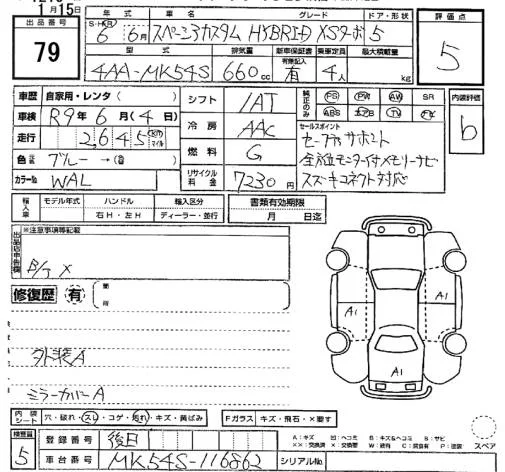 1月15日
出品番号 79
年式 S・H・R 6年 6月
車名 スペーシアカスタム HYBRID
グレード XSターボ
ドア・形状 5
評価点 5
型式 4AA-MK54S
排気量 660cc
新車保証書 有無記入 有
乗車定員 4人
最大積載量 kg
車歴 自家用・レンタ( )
車検 R9年6月(4日)
走行 2,645 km マイル
色 ブルー→( 色)
カラーNo WAL
シフト IAT
冷房 AAC
燃料 G
リサイクル料金 7230円
純正のみ PS PW AW SR
ABS エアB TV
セールスポイント
セーフティサポート
全方位モニター付メモリーナビ
スズキコネクト対応
内装評価 b
輸入車 モデル年式 年
ハンドル 右H・左H
輸入区分 ディーラー・並行
書類有効期限 月 日迄
出品店申告欄
※注意事項等記載
修復歴 有 箇所
外装A
ミラーカバーA
A1 A1
A1
内装シート 穴・破れ・スレ・コゲ・汚れ・キズ・黄ばみ
Fガラス キズ・飛石・×要す
スペア
検査員 5
登録番号 後日
車台番号 MK54S-116862
シリアルNo
A:キズ 凹:ヘコミ B:キズ&ヘコミ S:サビ
××:交換済 X:交換要 W:波有 C:腐食有 P:塗装